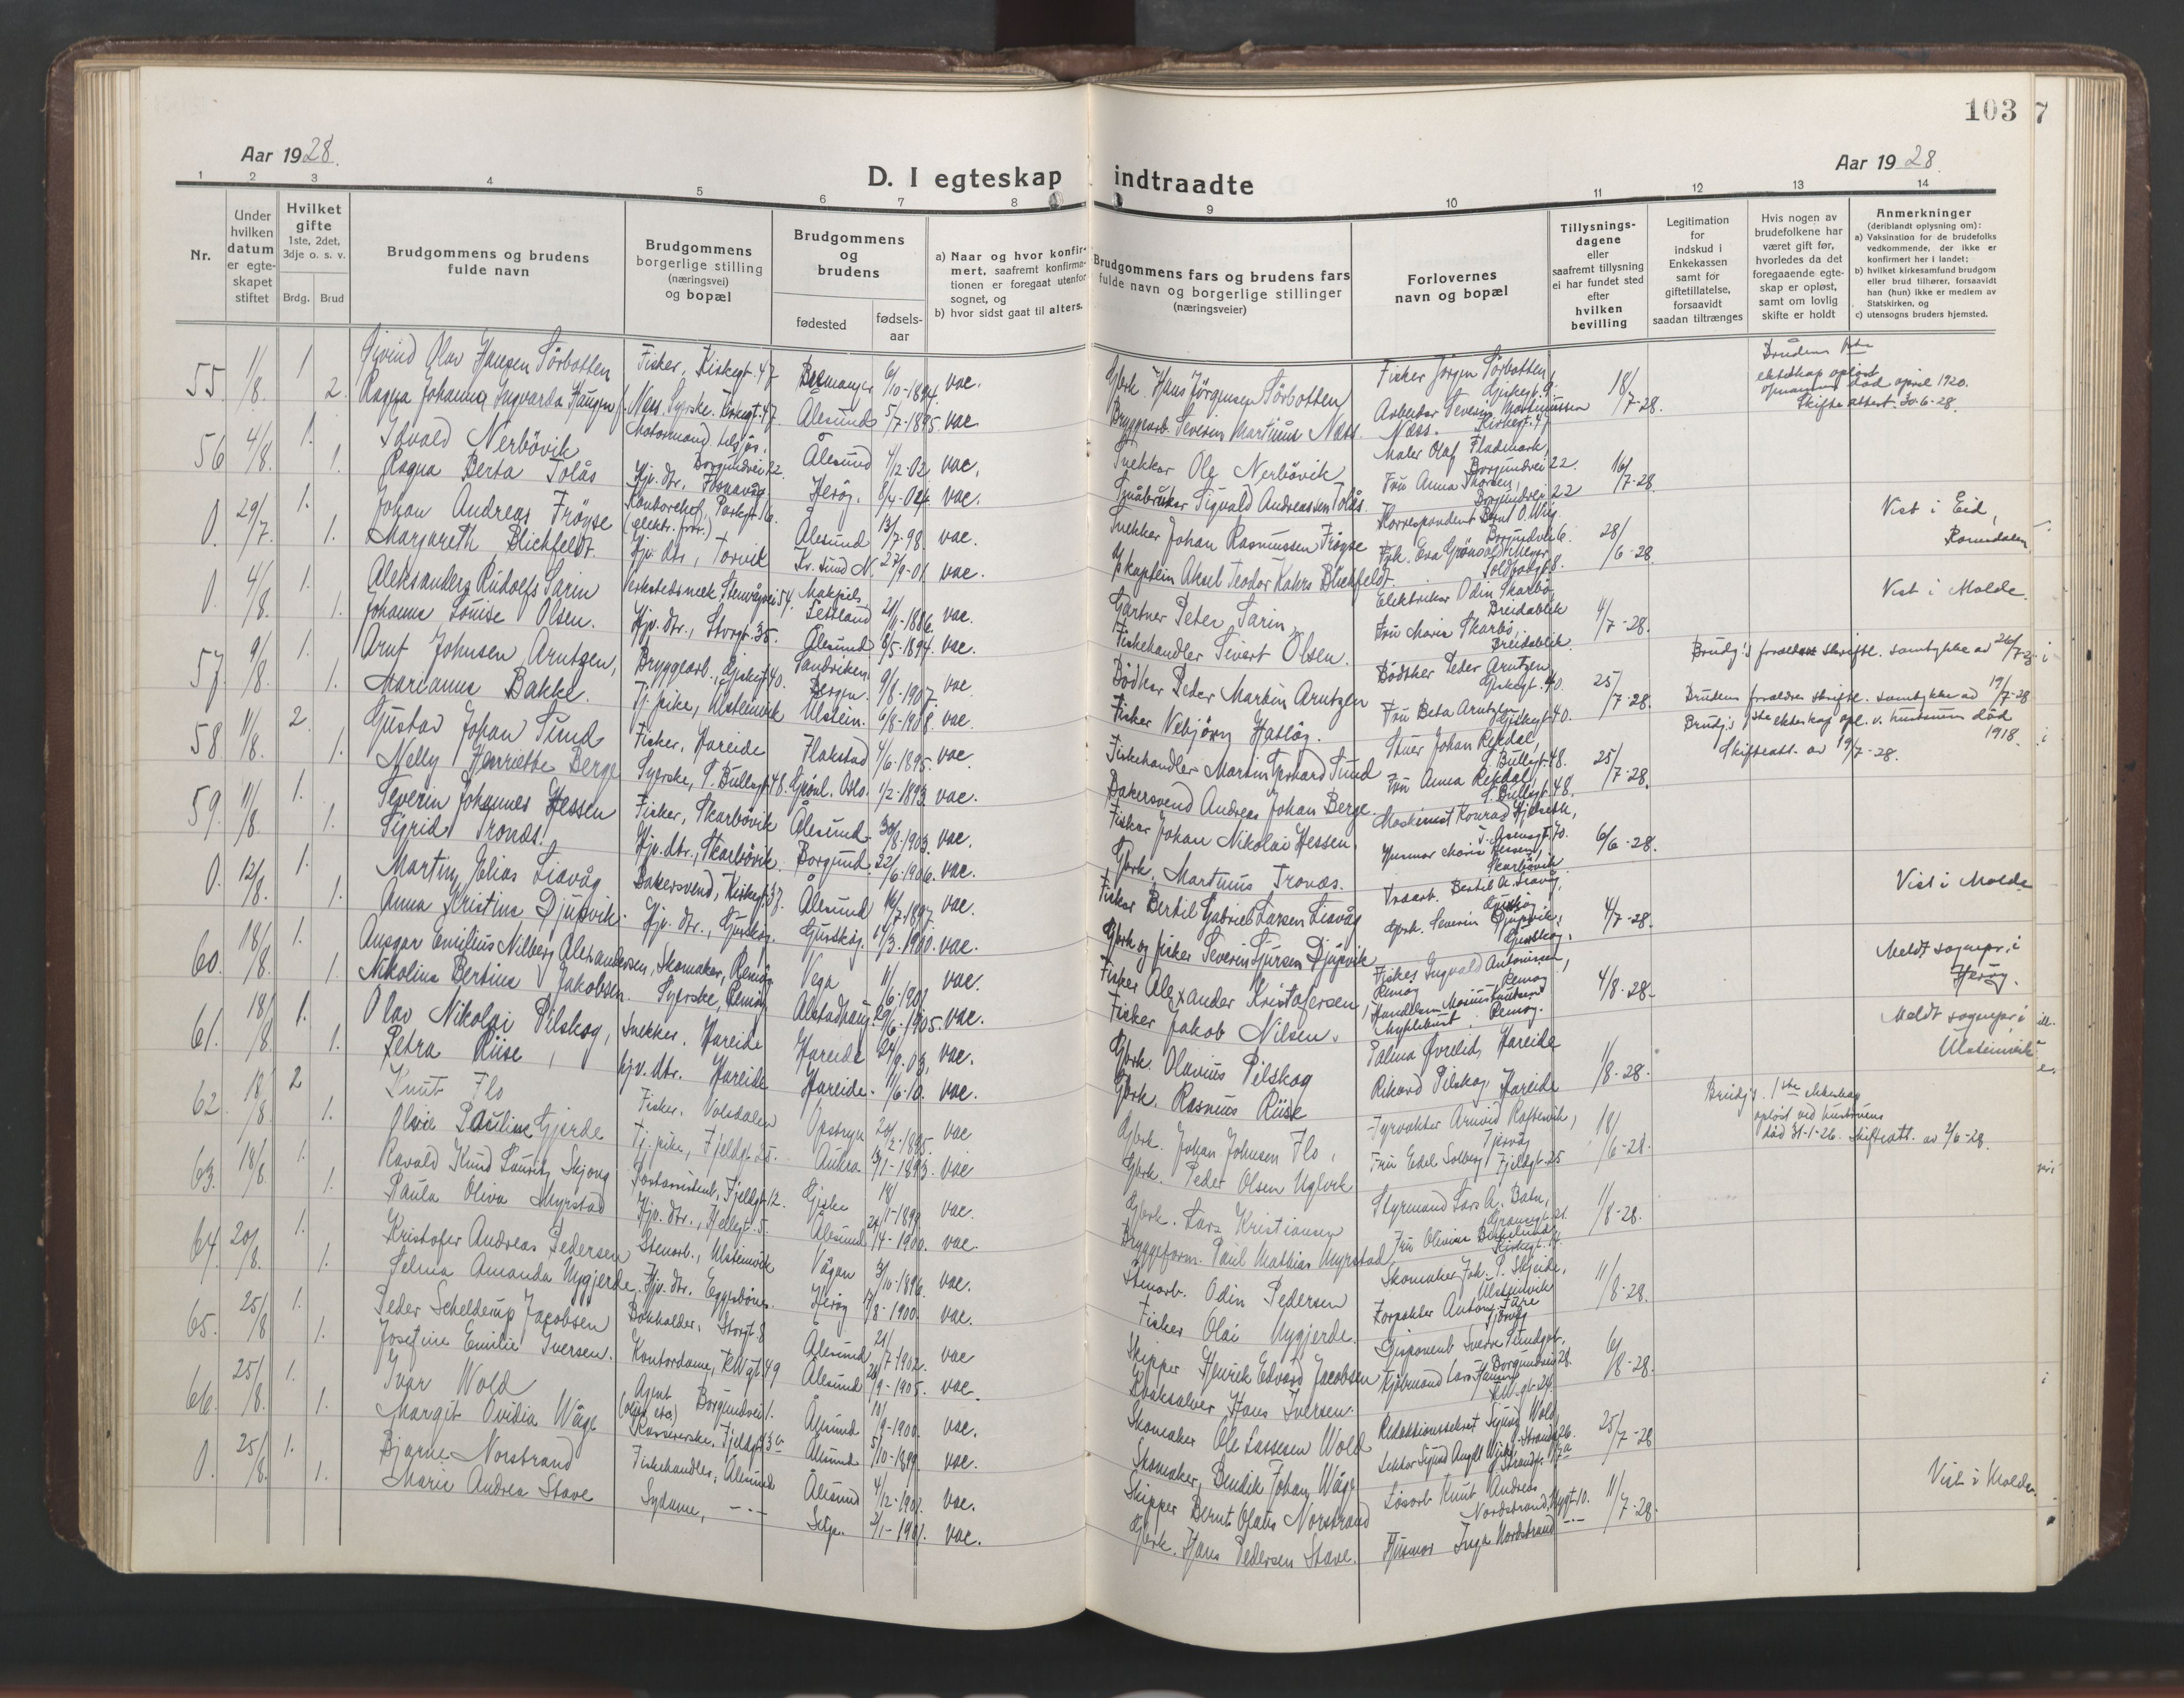 103
7
Aar 1928.
Aar 1928.
D. I egteskap indtraadte
1 2 3 4 5 6 7 8 9 10 11 12 13 14
Nr.
Under hvilken datum er egteskapet stiftet
Hvilket gifte 1ste, 2det, 3dje o. s. v.
Brdg. Brud
Brudgommens og brudens fulde navn
Brudgommens borgerlige stilling (næringsvei) og bopæl
Brudgommens og brudens
fødested
fødselsaar
a) Naar og hvor konfirmert, saafremt konfirmationen er foregaat utenfor sognet, og
b) hvor sidst gaat til alters.
Brudgommens fars og brudens fars fulde navn og borgerlige stillinger (næringsveier)
Forlovernes navn og bopæl
Tillysningsdagene eller saafremt tillysning ei har fundet sted efter hvilken bevilling
Legitimation for indskud i Enkekassen samt for giftetillatelse, forsaavidt saadan tiltrænges
Hvis nogen av brudefolkene har været gift før, hvorledes da det foregaaende egteskap er opløst, samt om lovlig skifte er holdt
Anmerkninger (deriblandt oplysning om):
a) Vaksination for de brudefolks vedkommende, der ikke er konfirmert her i landet;
b) hvilket kirkesamfund brudgom eller brud tilhører, forsaavidt han (hun) ikke er medlem av Statskirken, og
c) utensogns bruders hjemsted.
55 1/8. 1. Eivind Olav Hansen Sörbotten Fisker, Kirkegt. 47 Bremanger 6/10-1894. vac. Gbrk. Hans Jörgensen Sörbotten Fisker Jörgen Sörbotten, Giskegt. 9. 18/7-28. Brudens 1ste ekteskap opløst v. mannens død april 1920. Skifteattest. 30-6-28.
2. Ragna Johanna Ingvarda Haugen f. Næss Syerske. Kirkegt. 47 Ålesund 5/7-1895. vac Bryggearb. Severin Martinus Næss. Arbeider Severin Martinussen Næss. Kirkegt. 47
56 4/8. 1. Edvald Nerbövik Motormand tilsjøs, Borgundvei 22. Ålesund 4/2-02 vac. Snekker Ole Nerbövik Maler Olaf Flademark, Borgundvei 22. 16/7-28.
1. Ragna Berta Tolås Hjv. dtr. Fosnavåg Heröy. 8/4-04. vac. Småbruker Sigvald Andreassen Tolås. Fru Anna Thorsen, Borgundvei 22
0. 29/7. 1. Johan Andreas Fröyse Kontorchef, Parkgt. 6. (elektr. forr.) Ålesund 13/7-98. vac. Snekker Johan Rasmussen Fröyse Korrespondent Bernt O. Wiig Borgundvei 6. 28/6-28. Viet i Eid, Romsdalen
1. Margareth Blichfeldt. Hjv. dtr., Torvik Kr. sund N. 27/9-01. vac. Skaptein Aksel Teodor Kahrs Blichfeldt.
0. 4/8. 1. Aleksanders Rudolfs Sarin Verkstedsmek. Stenvågvei 54. Letland 21/11-1886. vac. Gartner Peter Sarin, Elektriker Odin Skarbø Breidablik 4/7-28. Viet i Molde.
1. Johanne Louise Olsen. Hjv. dtr., Storgt. 35. Ålesund 8/5-1894. vac. Fiskehandler Sivert Olsen. Fru Marie Skarbø, Breidablik.
57. 9/8. 1. Arnt Johnsen Arntzen, Bryggearb., Giskegt. 40. Sandviken Bergen. 9/8-1907. vac Bödker Peder Martin Arntzen Bödtker Peder Arntzen Giskegt. 40. 25/7-28. Brudg.'s forældres skriftl. samtykke ad 26/7-28
1. Marianne Bakke. Tj. pike, Ulsteinvik Ulstein. 6/8-1908. vac. Fisker Nebjörn Hatlöy. Fru Beta Arntzen, Giskegt. 40. Brudens forældres skriftl. samtykke ad 19/7-28
58 11/8. 2. Gustav Johan Sund Fisker, Hareide Flakstad 4/6-1895. vac. Fiskehandler Martin Gerhard Sund Stuer Johan Rekdal, S. Bullsgt. 48. 25/7-28. Brudg.'s 1ste ekteskap opl. v. hustruens död 1918. Skifteatt. av 19/7-28.
1. Nelly Henriette Berge Syerske, S. Bullsgt. 48. Grönl. Oslo. 1/2-1893. vac. Bakersvend Andreas Johan Berge. Fru Anna Rekdal, S. Bullsgt. 48.
59. 11/8. 1. Severin Johannes Hessen Fisker, Skarbövik Ålesund 30/8-1903. vac. Fisker Johan Nikolai Hessen. Maskinist Konrad Hjelseth, 6/6-28.
1. Sigrid Tronæs. Hjv. dtr., Skarbövik. Borgund. 22/6-1906. vac. Gbrk. Martinus Tronæs. Husmor Marie Hessen, Skarbövik
0. 12/8. 1. Martin Elias Liavåg Bakersvend, Kirkegt. 37. Ålesund 16/7-1897. vac. Fisker Bertil Gabriel Larsen Liavåg Bertil A. Liavåg, 4/7-28. Viet i Molde
1. Anna Kristine Djupvik. Hjv. dtr., Gurskøy. Gurskøy. 1/3-1900. vac. Gbrk og fisker Severin Sjursen Djupvik Gbrk. Severin Djupvik, Gurskøy.
60. 18/8. 1. Ansgar Emilius Nilberg Alexandersen, Skomaker, Remöy Vega 11/6-1901 vac. Fisker Alexander Kristofersen, Fisker Ingvald Antonsen, Remöy 4/8-28. Meldt sognepr. i Heröy.
1. Nikoline Bertine Jakobsen. Syerske, Remöy Alstadhaug. 29/6-1905. vac. Fisker Jakob Nilsen. Myklebust, Remöy.
61. 18/8. 1. Olav Nikolai Pilskog, Snekker, Hareide Hareide 24/9-03, vac. Gbrk. Olavius Pilskog Palma Overlid, Hareide 11/8-28. Meldt sognepr. i Ulsteinvik
1. Petra Riise, hjv. dtr. Hareide Hareide. 11/6-10. vac. Gbrk. Rasmus Riise Rikard Pilskog, Hareide
62. 18/8. 2 Knut Flo Fisker. Volsdalen Opstryn 20/2-1885. vac Gbrk. Johan Johnsen Flo, Fyrvokter Arnvid Raftevik, 18/6-28. Brudg.'s 1ste ekteskap opløst ved hustruens død 31-1-26. Skifteatt. av 2/6-28.
1. Olvie Pauline Gjerde Tj. pike, Fjeldgt. 25. Aukra 13/1-1893. vac Gbrk. Peder Olsen Uglvik Fru Edel Solberg Fjeldgt. 25
63. 18/8. 1. Ravald Knud Laurits Skjong Postassistent, Fjeldgt. 12. Giske 18/1-1899 vac. Gbrk. Lars Kristiansen Styrmand Lars A. Batn, 11/8-28.
1. Paula Oliva Myrstad Hjv. dtr., Hellegt. 5. Ålesund 24/4-1900. vac. Bryggeform. Paul Mathias Myrstad Fru Olivine Kirkegt.
64. 20/8. 1. Kristofer Andreas Pedersen Stenarb., Ulsteinvik Vågan 3/10-1896. vac. Stenarb. Odin Pedersen Skomaker Joh. P. Skjeide, Ulsteinvik 11/8-28.
1. Selma Amanda Nygjerde. Hjv. dtr. Eggesbönes. Heröy 17/8-1900. vac. Fisker Olai Nygjerde. Forpakter Anton Fure
65. 25/8 1. Peder Schelderup Jacobsen Bokholder, Storgt. 8 Ålesund 21/7-1902. vac Skipper Henrik Edvard Jacobsen Disponent Sverre Sundgot. Borgundvei 28. 6/8-28.
1. Josefine Emilie Iversen. Kontordame, K.W.gt. 49 Ålesund 28/9-1905. vac. Kvaksalver Hans Iversen. Kjöbmand Lars Hansen K.W.gt. 24.
66. 25/8. 1. Ivar Wold Agent (olje etc) Borgundvei 1. Ålesund 10/9-1900. vac. Skomaker Ole Lassesen Wold Redaktionssekret. Sigurd Wold 25/7-28
1. Margit Ovidia Wåge Kassererske. Fjeldgt. 30 Ålesund 5/10-1899. vac. Skomaker, Bendik Johan Wåge
0. 25/8. 1. Bjarne Norstrand Fiskehandler, Ålesund Ålesund 4/12-1901. vac. Skipper Bernt Olaus Norstrand Løsarb. Knut Andreas Nordstrand, Nygt. 10. 11/7-28. Viet i Molde.
1. Marie Andrea Stave Sydame, — " — Selje. 3/1-1901. vac. Gbrk. Hans Pedersen Stave. Husmor Inga Nordstrand — " —